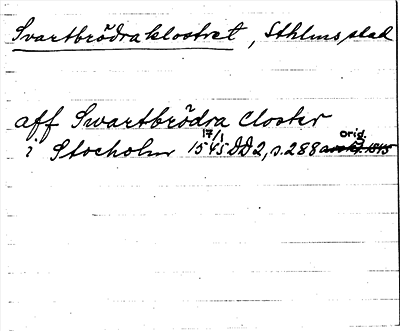 Svartbrödraklostret, Sthlms stad
aff Swartbrödra Closter
i Stocholm 17/1 1545 DD2, s. 288 orig.